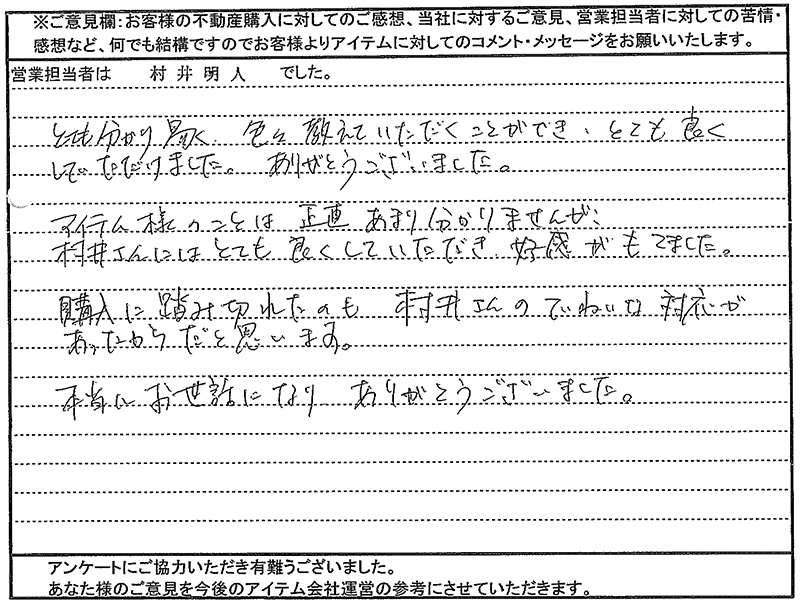 ※ご意見欄:お客様の不動産購入に対してのご感想、当社に対するご意見、営業担当者に対しての苦情・
感想など、何でも結構ですのでお客様よりアイテムに対してのコメント・メッセージをお願いいたします。
営業担当者は 村井明人 でした。
とても分かり易く、色々教えていただくことができ、とても良く
していただけました。ありがとうございました。
アイテム様のことは正直あまり分かりませんが、
村井さんにはとても良くしていただき、好感がもてました。
購入に踏み切れたのも村井さんのていねいな対応が
あったからだと思います。
本当にお世話になりありがとうございました。
アンケートにご協力いただき有難うございました。
あなた様のご意見を今後のアイテム会社運営の参考にさせていただきます。